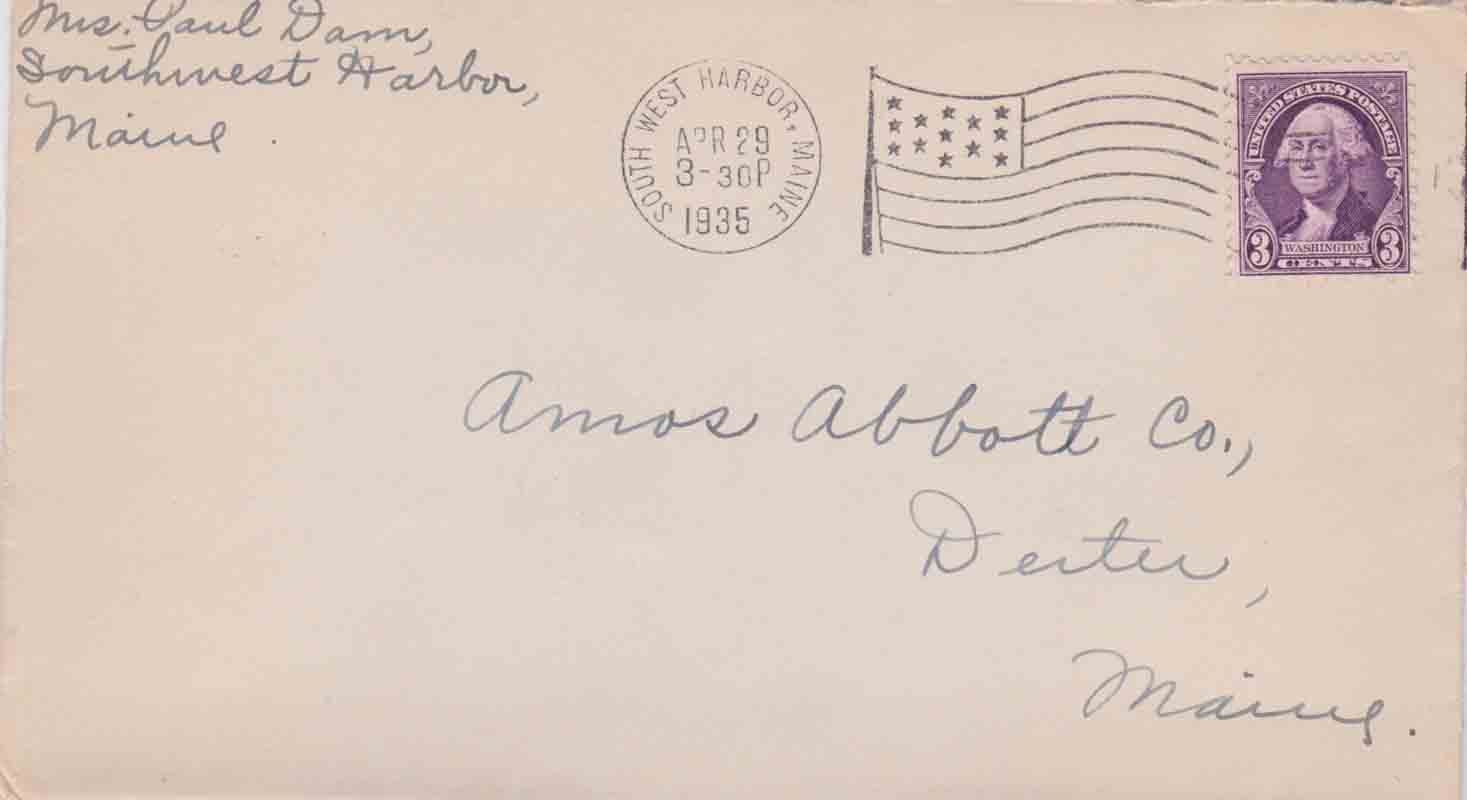 Mrs. Paul Dam,
Southwest Harbor,
Maine.
SOUTH WEST HARBOR, MAINE
APR 29
3-30P
1935
UNITED STATES POSTAGE
WASHINGTON
3 CENTS 3
Amos Abbott Co.,
Dexter,
Maine.